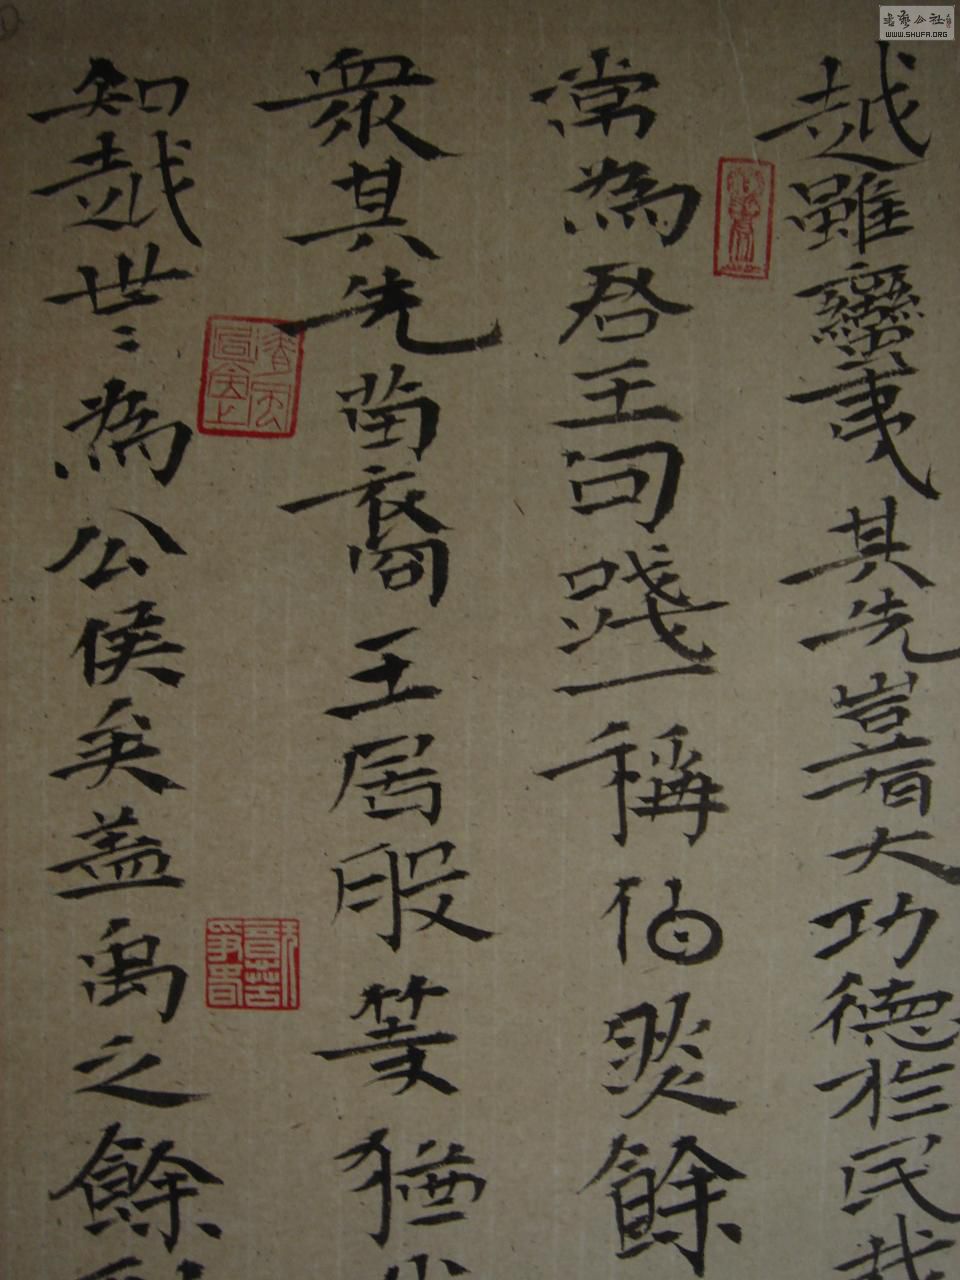 越雖蠻夷其先豈有大功德於民哉
常為君王句踐一稱伯然餘
眾其先苗裔王居股等猶尚
知越世〻為公侯矣蓋禹之餘
書藝公社
WWW.SHUFA.ORG